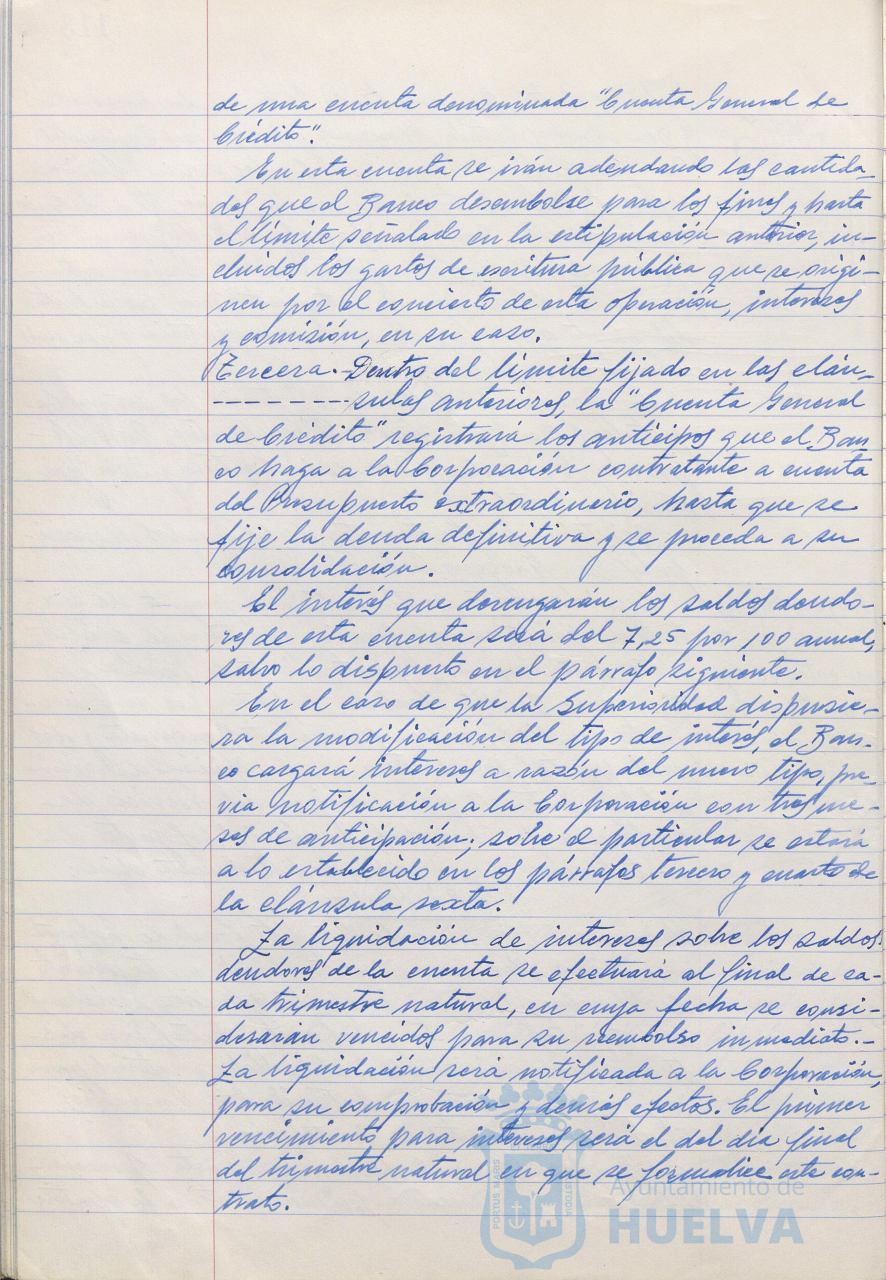 de una cuenta denominada "Cuenta General de
Crédito".
En esta cuenta se irán adeudando las cantida-
des que el Banco desembolse para los fines y hasta
el límite señalado en la estipulación anterior, in-
cluidos los gastos de escritura pública que se origi-
nen por el concierto de esta operación, intereses
y comisión, en su caso.
Tercera.- Dentro del límite fijado en las cláu-
--------- sulas anteriores, la "Cuenta General
de Crédito" registrará los anticipos que el Ban-
co haga a la Corporación contratante a cuenta
del Presupuesto extraordinario, hasta que se
fije la deuda definitiva y se proceda a su
consolidación.
El interés que devengarán los saldos deudo-
res de esta cuenta será del 7,25 por 100 anual,
salvo lo dispuesto en el párrafo siguiente.
En el caso de que la Superioridad dispusie-
ra la modificación del tipo de interés, el Ban-
co cargará intereses a razón del nuevo tipo, pre-
via notificación a la Corporación con tres me-
ses de anticipación; sobre el particular se estará
a lo establecido en los párrafos tercero y cuarto de
la cláusula sexta.
La liquidación de intereses sobre los saldos
deudores de la cuenta se efectuará al final de ca-
da trimestre natural, en cuya fecha se consi-
derarán vencidos para su reembolso inmediato.-
La liquidación será notificada a la Corporación,
para su comprobación y demás efectos. El primer
vencimiento para intereses será el del día final
del trimestre natural en que se formalice este con-
trato.
PORTUS MARIS
CUSTODIA
Ayuntamiento de
HUELVA